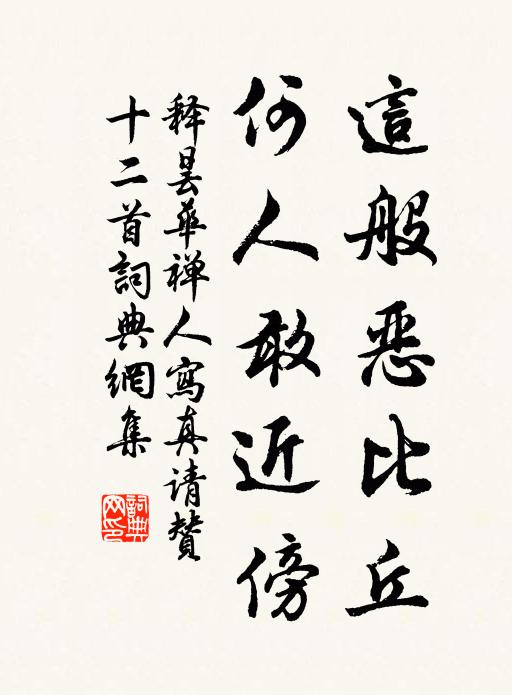 這般恶比丘
何人敢近傍
释昙华禅人寫真请贊
十二首詞典網集
詞典
网印